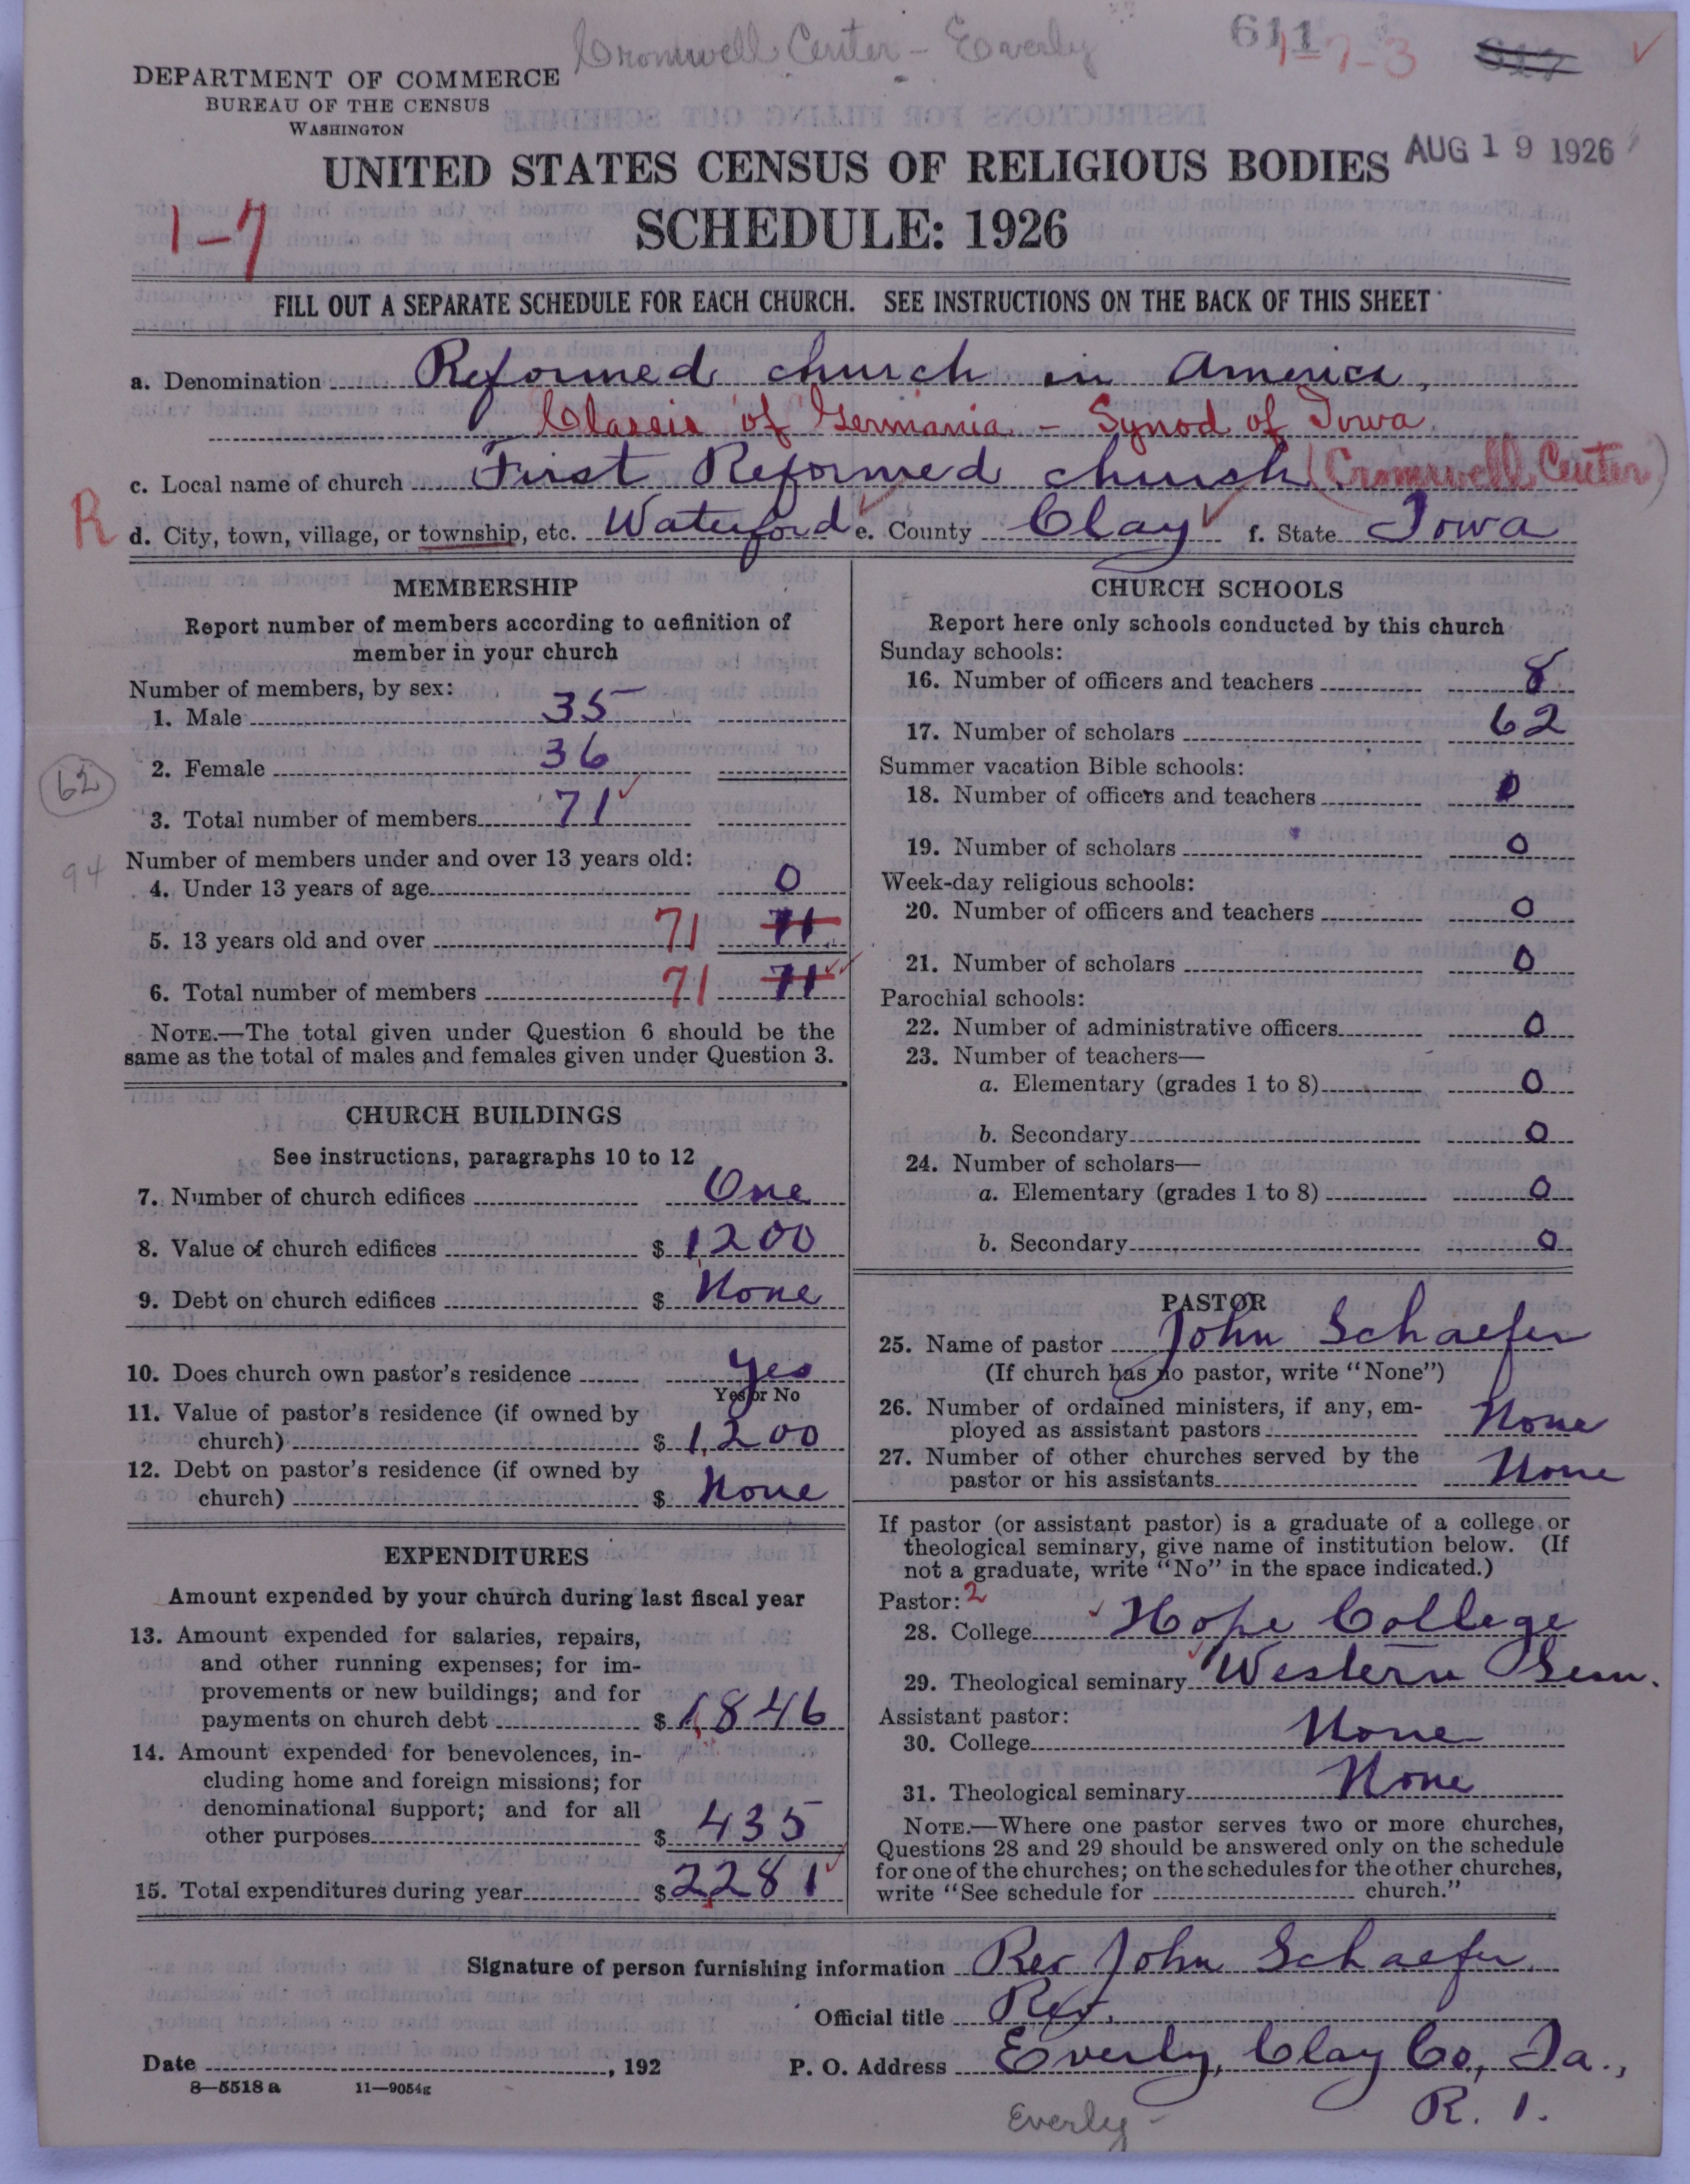 Cromwell Center - Everly
611
1-7-3
617
DEPARTMENT OF COMMERCE
BUREAU OF THE CENSUS
WASHINGTON
UNITED STATES CENSUS OF RELIGIOUS BODIES
AUG 19 1926
SCHEDULE: 1926
1-7
FILL OUT A SEPARATE SCHEDULE FOR EACH CHURCH. SEE INSTRUCTIONS ON THE BACK OF THIS SHEET
a. Denomination Reformed church in America,
Classis of Germania - Synod of Iowa
c. Local name of church First Reformed church (Cromwell Center)
R
d. City, town, village, or township, etc. Waterford e. County Clay f. State Iowa
MEMBERSHIP
Report number of members according to definition of
member in your church
Number of members, by sex:
1. Male 35
2. Female 36
62
3. Total number of members 71
94
Number of members under and over 13 years old:
4. Under 13 years of age 0
5. 13 years old and over 71 71
6. Total number of members 71 71
NOTE.—The total given under Question 6 should be the
same as the total of males and females given under Question 3.
CHURCH BUILDINGS
See instructions, paragraphs 10 to 12
7. Number of church edifices One
8. Value of church edifices $ 1200
9. Debt on church edifices $ None
10. Does church own pastor's residence Yes
Yes or No
11. Value of pastor's residence (if owned by
church) $ 1,200
12. Debt on pastor's residence (if owned by
church) $ None
EXPENDITURES
Amount expended by your church during last fiscal year
13. Amount expended for salaries, repairs,
and other running expenses; for im-
provements or new buildings; and for
payments on church debt $ 1,846
14. Amount expended for benevolences, in-
cluding home and foreign missions; for
denominational support; and for all
other purposes $ 435
15. Total expenditures during year $ 2,281
CHURCH SCHOOLS
Report here only schools conducted by this church
Sunday schools:
16. Number of officers and teachers 8
17. Number of scholars 62
Summer vacation Bible schools:
18. Number of officers and teachers 0
19. Number of scholars 0
Week-day religious schools:
20. Number of officers and teachers 0
21. Number of scholars 0
Parochial schools:
22. Number of administrative officers 0
23. Number of teachers—
a. Elementary (grades 1 to 8) 0
b. Secondary 0
24. Number of scholars—
a. Elementary (grades 1 to 8) 0
b. Secondary 0
PASTOR
25. Name of pastor John Schaefer
(If church has no pastor, write "None")
26. Number of ordained ministers, if any, em-
ployed as assistant pastors None
27. Number of other churches served by the
pastor or his assistants None
If pastor (or assistant pastor) is a graduate of a college or
theological seminary, give name of institution below. (If
not a graduate, write "No" in the space indicated.)
Pastor: 2
28. College Hope College
29. Theological seminary Western Sem.
Assistant pastor:
30. College None
31. Theological seminary None
NOTE.—Where one pastor serves two or more churches,
Questions 28 and 29 should be answered only on the schedule
for one of the churches; on the schedules for the other churches,
write "See schedule for church."
Signature of person furnishing information Rev John Schaefer
Official title Rev.
Date , 192 P. O. Address Everly, Clay Co., Ia.,
8—5518 a 11—9054g
R. 1.
Everly -